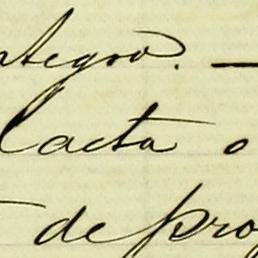 ntegro. —
lacta o
de pro